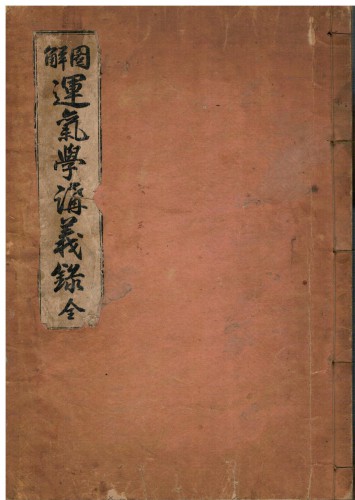 圖解
運氣學講義録
全